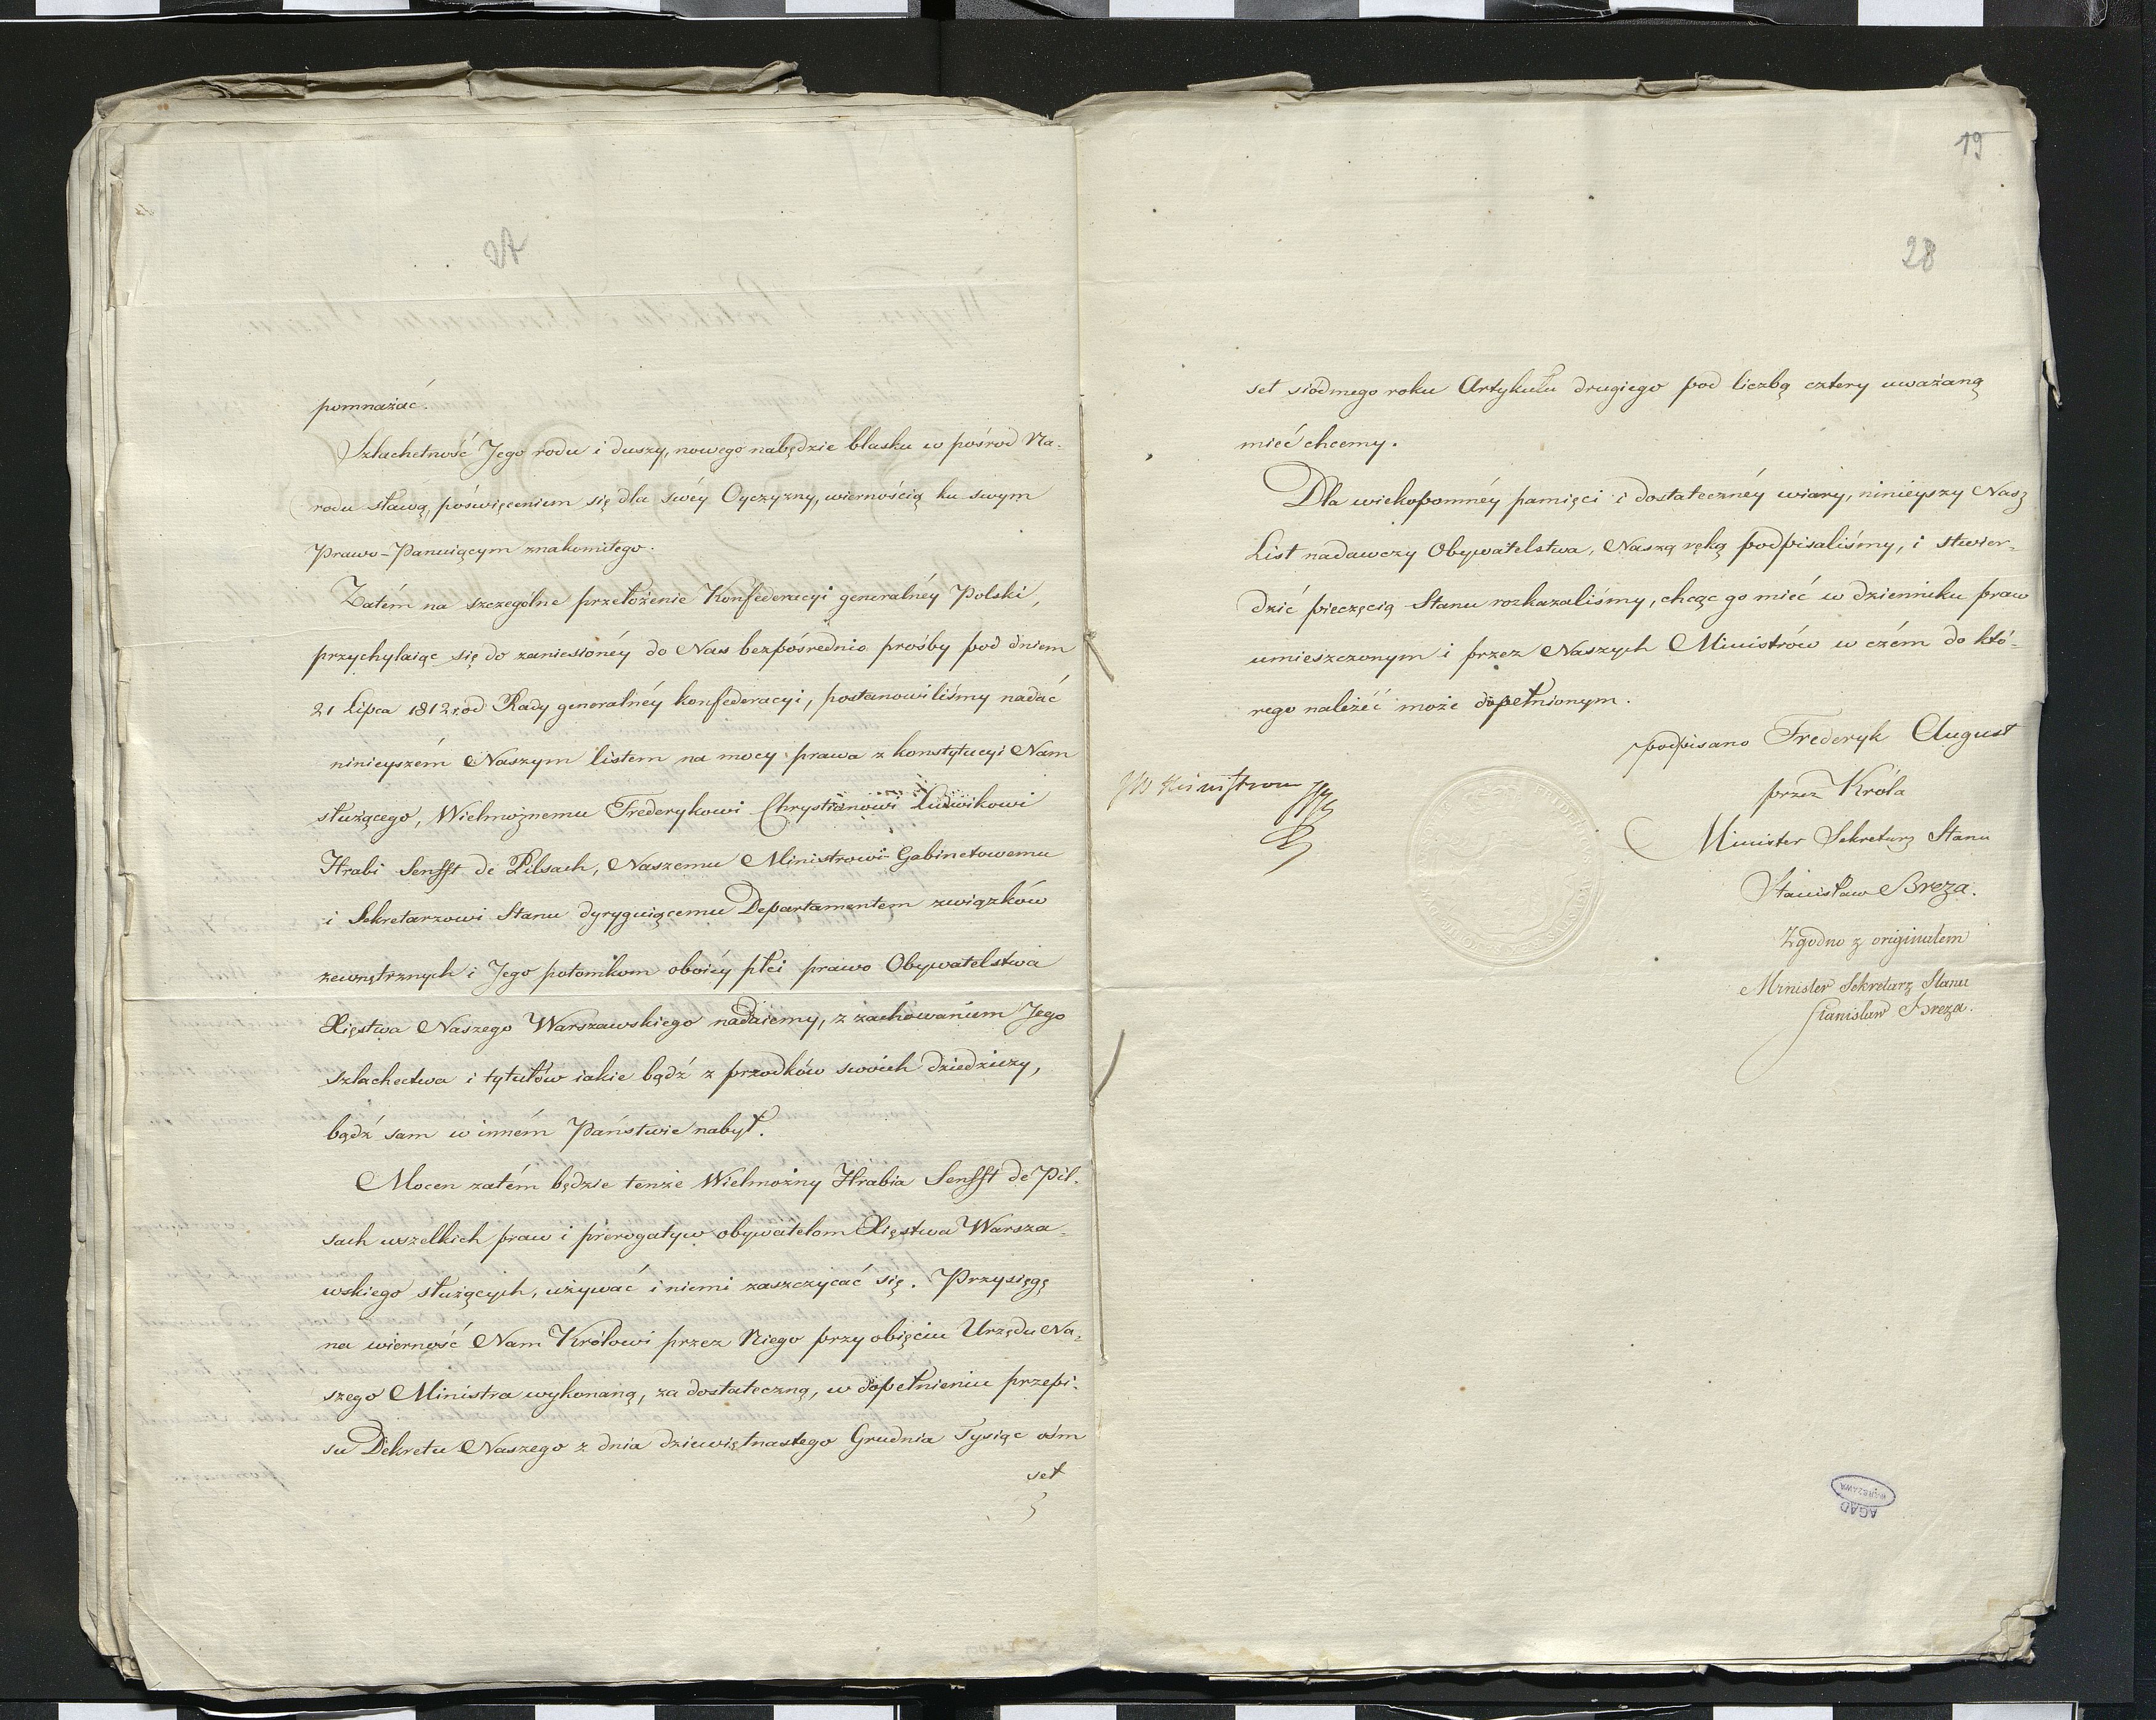 27
pomnażać.
Szlachetność Jego rodu i duszy, nowego nabędzie blasku w pośrod Na-
rodu sławą, poświęceniem się dla swéy Oyczyzny, wiernością ku swym
Prawo-Panuiącym znakomitego.
Zatém na szczególne przełożenie Konfederacyi generalnéy Polski,
przychylaiąc się do zaniesionéy do Nas bezpośrednio prośby pod dniem
21 Lipca 1812 r. od Rady generalnéy konfederacyi, postanowiliśmy nadać
ninieyszém Naszym listem na mocy prawa z konstytucyi Nam
służącego, Wielmożnemu Frederykowi Chrystianowi Ludwikowi
Hrabi Senfft de Pilsach, Naszemu Ministrowi Gabinetowemu
i Sekretarzowi Stanu dyryguiącemu Departamentem związków
zewnętrznych i Jego potomkom oboiéy płci prawo Obywatelstwa
Xięstwa Naszego Warszawskiego nadaiemy, z zachowaniem Jego
szlachectwa i tytułów iakie bądź z przodków swoich dziedziczy,
bądź sam w inném Państwie nabył.
Mocen zatém będzie tenże Wielmożny Hrabia Senfft de Pil-
sach wszelkich praw i prerogatyw obywatelom Xięstwa Warsza-
wskiego służących, używać i niemi zaszczycać się. Przysięgę
na wierność Nam Królowi przez Niego przy obięciu Urzędu Na-
szego Ministra wykonaną, za dostateczną, w dopełnieniu przepi-
su Dekretu Naszego z dnia dziewiętnastego Grudnia Tysiąc ośm
set
19
28
set siódmego roku Artykułu drugiego pod liczbą cztery uważaną
mieć chcemy.
Dla wiekopomnéy pamięci i dostatecznéy wiary, ninieyszy Nasz
List nadawczy Obywatelstwa, Naszą ręką podpisaliśmy, i stwier-
dzić pieczęcią Stanu rozkazaliśmy, chcąc go mieć w dzienniku praw
umieszczonym i przez Naszych Ministrów w czém do któ-
rego należéć może dopełnionym.
podpisano Frederyk August
przez Króla
Minister Sekretarz Stanu
Stanisław Breza.
Zgodno z originałem
Minister Sekretarz Stanu
Stanisław Breza.
JW Ministrow
AGAD
WARSZAWA